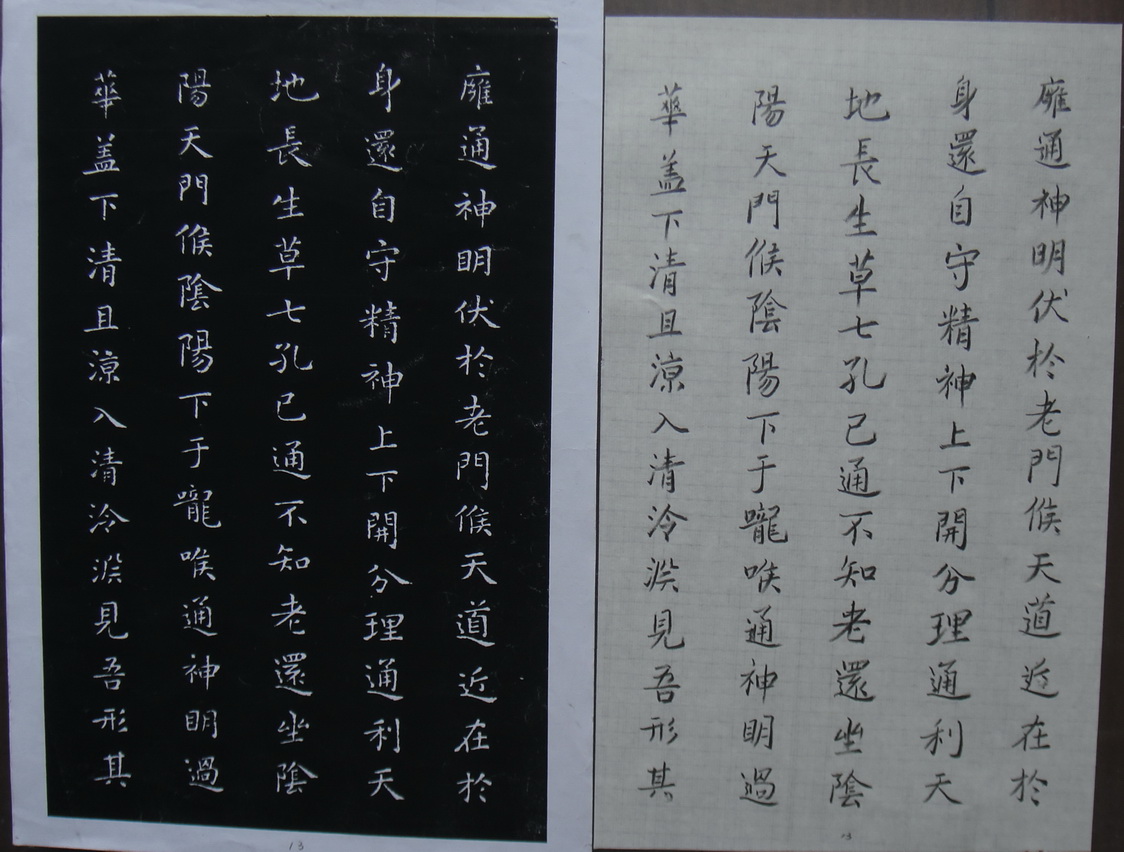 廱通神明伏於老門候天道近在於
身還自守精神上下開分理通利天
地長生草七孔已通不知老還坐陰
陽天門候陰陽下于嚨喉通神明過
華盖下清且涼入清泠淵見吾形其
13
廱通神明伏於老門候天道近在於
身還自守精神上下開分理通利天
地長生草七孔已通不知老還坐陰
陽天門候陰陽下于嚨喉通神明過
華盖下清且涼入清泠淵見吾形其
13